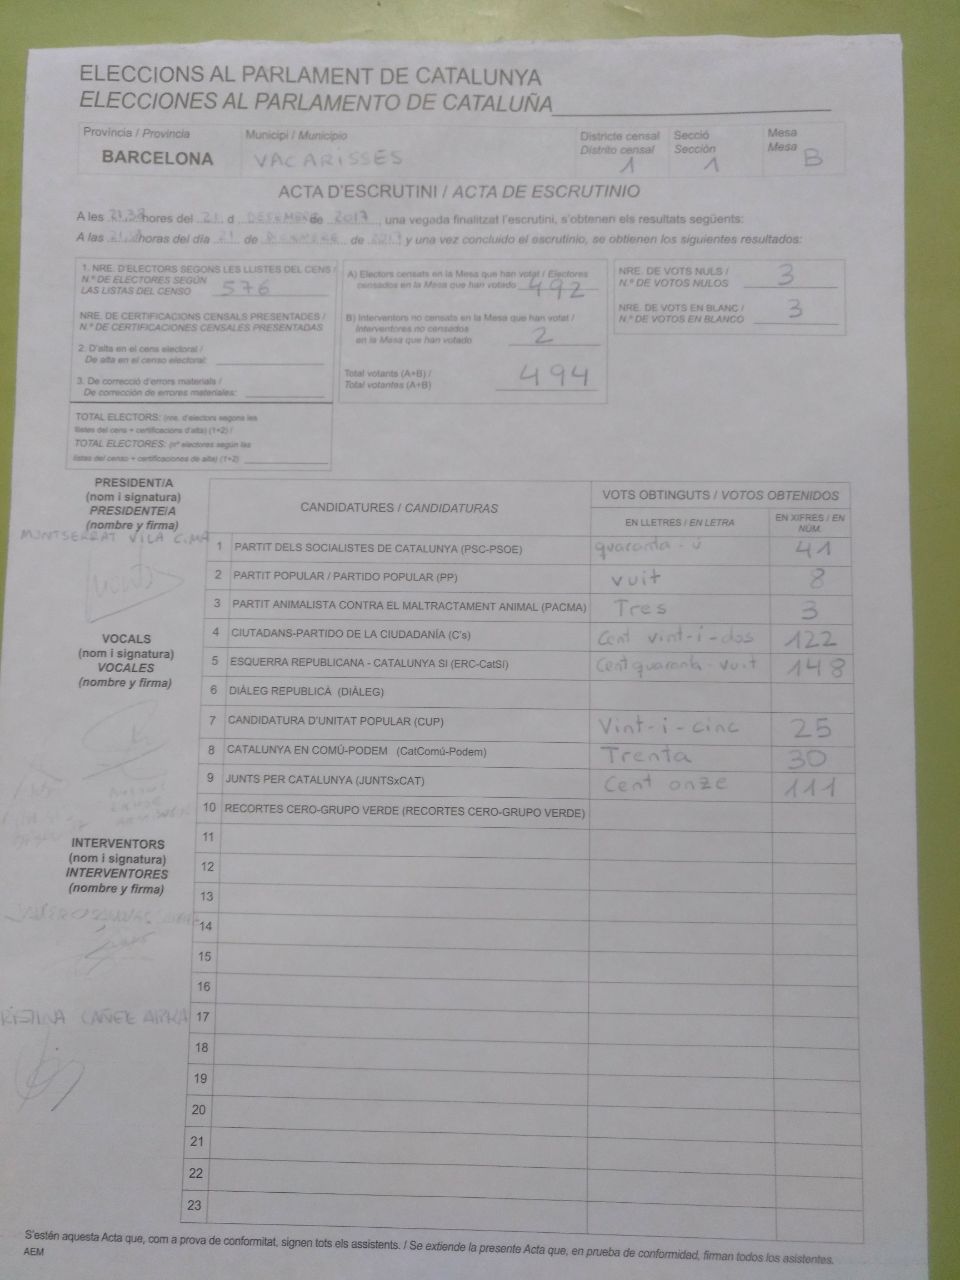 ELECCIONS AL PARLAMENT DE CATALUNYA
ELECCIONES AL PARLAMENTO DE CATALUÑA
Província / Provincia
BARCELONA
Municipi / Municipio
VACARISSES
Districte censal
Distrito censal
1
Secció
Sección
1
Mesa
Mesa
B
ACTA D'ESCRUTINI / ACTA DE ESCRUTINIO
A les hores del 21 d DESEMBRE de 2017, una vegada finalitzat l'escrutini, s'obtenen els resultats següents:
A las horas del día 21 de de 2017 y una vez concluido el escrutinio, se obtienen los siguientes resultados:
1. NRE. D'ELECTORS SEGONS LES LLISTES DEL CENS /
N.º DE ELECTORES SEGÚN
LAS LISTAS DEL CENSO 576
NRE. DE CERTIFICACIONS CENSALS PRESENTADES /
N.º DE CERTIFICACIONES CENSALES PRESENTADAS
2. D'alta en el cens electoral /
De alta en el censo electoral:
3. De correcció d'errors materials /
De corrección de errores materiales:
TOTAL ELECTORS: (nre. d'electors segons les
llistes del cens + certificacions d'alta) (1+2) /
TOTAL ELECTORES: (nº electores según las
listas del censo + certificaciones de alta) (1+2)
A) Electors censats en la Mesa que han votat / Electores
censados en la Mesa que han votado 492
B) Interventors no censats en la Mesa que han votat /
Interventores no censados
en la Mesa que han votado 2
Total votants (A+B) /
Total votantes (A+B) 494
NRE. DE VOTS NULS /
N.º DE VOTOS NULOS 3
NRE. DE VOTS EN BLANC /
N.º DE VOTOS EN BLANCO 3
PRESIDENT/A
(nom i signatura)
PRESIDENTE/A
(nombre y firma)
MONTSERRAT VILA CIMA
VOCALS
(nom i signatura)
VOCALES
(nombre y firma)
INTERVENTORS
(nom i signatura)
INTERVENTORES
(nombre y firma)
CANDIDATURES / CANDIDATURAS
VOTS OBTINGUTS / VOTOS OBTENIDOS
EN LLETRES / EN LETRA
EN XIFRES / EN NÚM.
1 PARTIT DELS SOCIALISTES DE CATALUNYA (PSC-PSOE) quaranta-ú 41
2 PARTIT POPULAR / PARTIDO POPULAR (PP) vuit 8
3 PARTIT ANIMALISTA CONTRA EL MALTRACTAMENT ANIMAL (PACMA) Tres 3
4 CIUTADANS-PARTIDO DE LA CIUDADANÍA (C's) Cent vint-i-dos 122
5 ESQUERRA REPUBLICANA - CATALUNYA SI (ERC-CatSÍ) Cent quaranta-vuit 148
6 DIÀLEG REPUBLICÀ (DIÀLEG)
7 CANDIDATURA D'UNITAT POPULAR (CUP) Vint-i-cinc 25
8 CATALUNYA EN COMÚ-PODEM (CatComú-Podem) Trenta 30
9 JUNTS PER CATALUNYA (JUNTSxCAT) Cent onze 111
10 RECORTES CERO-GRUPO VERDE (RECORTES CERO-GRUPO VERDE)
11
12
13
14
15
16
17
18
19
20
21
22
23
S'estén aquesta Acta que, com a prova de conformitat, signen tots els assistents. / Se extiende la presente Acta que, en prueba de conformidad, firman todos los asistentes.
AEM